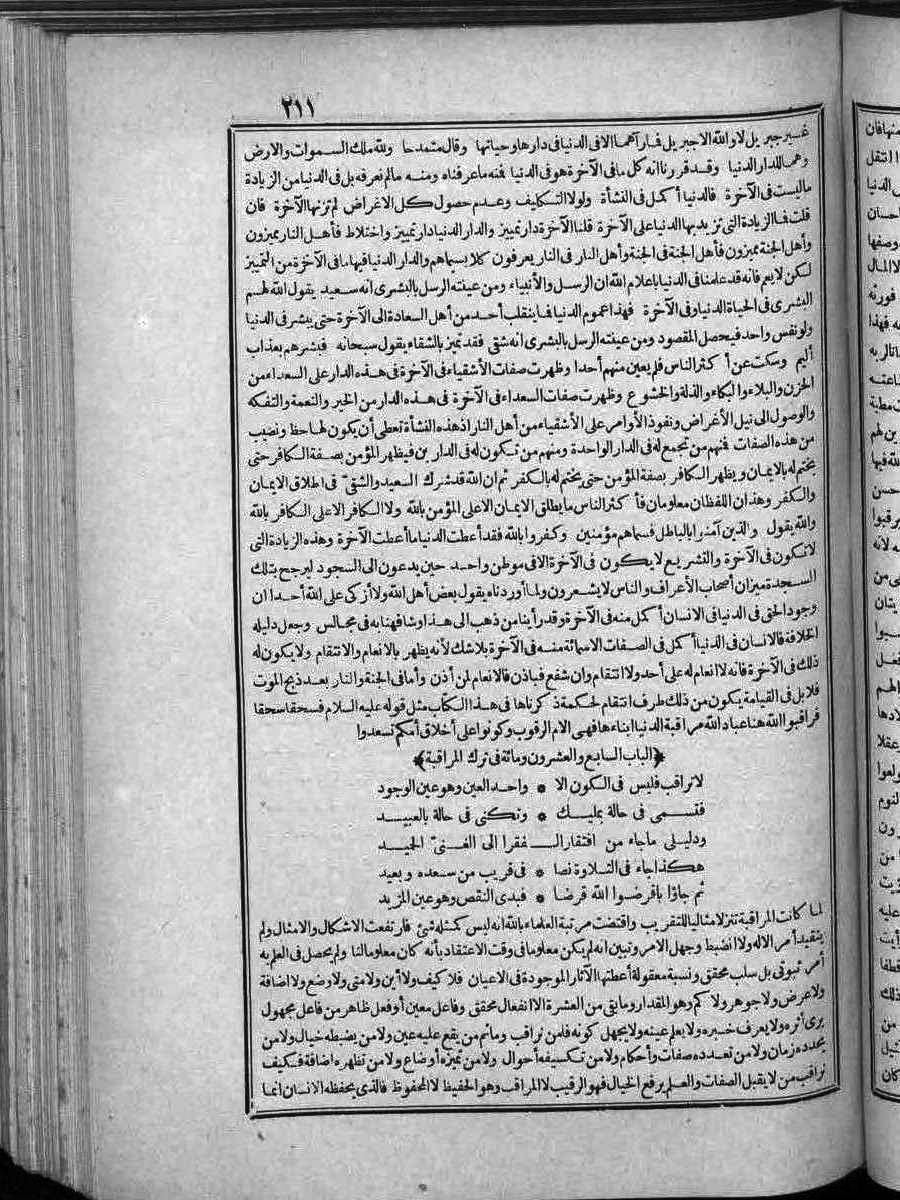 ٢١١
غير جبريل لا والله الا جبريل فما رآهما الا في الدنيا في دارها وحياتها وقال متمدحا ولله ملك السموات والارض
وهما للدار الدنيا وقد قررنا انه كل ما في الآخرة هو في الدنيا فنه ما عرفناه ومنه ما لم نعرفه بل في الدنيا من الزيادة
ما ليست في الآخرة فالدنيا أكمل في النشأة ولولا التكليف وعدم حصول كل الاغراض لم تزنها الآخرة فان
قلت فما الزيادة التي تزيد بها الدنيا على الآخرة قلنا الآخرة دار تمييز والدار الدنيا دار تمييز واختلاط فأهل النار مميزون
وأهل الجنة مميزون فأهل الجنة في الجنة وأهل النار في النار يعرفون كلا بسيماهم والدار الدنيا فيها ما في الآخرة من التمييز
لكن لا يعم فانه قد علمنا في الدنيا باعلام الله ان الرسل والأنبياء ومن عينته الرسل بالبشرى انه سعيد يقول الله لهم
البشرى في الحياة الدنيا وفي الآخرة فهذا عموم الدنيا فما ينقلب أحد من أهل السعادة الى الآخرة حتى يبشر في الدنيا
ولو نفس واحد فيحصل المقصود ومن عينته الرسل بالبشرى انه شقي فقد تميز بالشقاء يقول سبحانه فبشرهم بعذاب
أليم وسكت عن أكثر الناس فلم يعين منهم أحدا وظهرت صفات الأشقياء في الآخرة في هذه الدار على السعداء من
الحزن والبلاء والبكاء والذلة والخشوع وظهرت صفات السعداء في الآخرة في هذه الدار من الخير والنعمة والتفكه
والوصول الى نيل الأغراض ونفوذ الأوامر على الأشقياء من أهل النار اذ هذه النشأة تعطي أن يكون لها حظ ونصيب
من هذه الصفات فنهم من تجمع له في الدار الواحدة ومنهم من تكون له في الدارين فيظهر المؤمن بصفة الكافر حتى
يختم له بالايمان ويظهر الكافر بصفة المؤمن حتى يختم له بالكفر ثم ان الله قد شرك السعيد والشقي في اطلاق الايمان
والكفر وهذان اللفظان معلومان فأكثر الناس ما يطلق الايمان الا على المؤمن بالله ولا الكافر الا على الكافر بالله
والله يقول والذين آمنوا بالباطل فسماهم مؤمنين وكفروا بالله فقد أعطت الدنيا ما أعطت الآخرة وهذه الزيادة التي
لا تكون في الآخرة والتشريع لا يكون في الآخرة الا في موطن واحد حين يدعون الى السجود ليرجح بتلك
السجدة ميزان أصحاب الأعراف والناس لا يشعرون ولما أوردناه يقول بعض أهل الله ولا أزكى على الله أحدا ان
وجود الحق في الدنيا في الانسان أكمل منه في الآخرة وقد رأينا من ذهب الى هذا وشافهنا به في مجالس وجعل دليله
الخلافة فالانسان في الدنيا أكمل في الصفات الاسمائة منه في الآخرة بلا شك لأنه يظهر بالانعام والانتقام ولا يكون له
ذلك في الآخرة فانه لا انعام له على أحد ولا انتقام وان شفع فباذن فالانعام لمن أذن وأما في الجنة والنار بعد ذبح الموت
فلا بل في القيامة يكون من ذلك طرف انتقام لحكمة ذكرناها في هذا الكتاب مثل قوله عليه السلام فسحقا سحقا
فراقبوا الله هنا عباد الله مراقبة الدنيا ابناءها فهي الام الرقوب وكونوا على أخلاق أمكم تسعدوا
﴿الباب السابع والعشرون ومائة في ترك المراقبة﴾
لا تراقب فليس في الكون الا * واحد العين وهو عين الوجود
فتسمى في حالة بمليك * وتكنى في حالة بالعبيد
ودليلي ما جاء من افتقار الـ ـفقرا الى الغني الحميد
هكذا جاء في التلاوة نصا * في قريب من سعده وبعيد
ثم جاؤا باقرضوا الله قرضا * فبدى النقص وهو عين المزيد
لما كانت المراقبة تنزلا مثاليا للتقريب واقتضت مرتبة العلماء بالله انه ليس كمثله شئ فارتفعت الاشكال والامثال ولم
يتقيد أمر الاله ولا انضبط وجهل الامر وتبين انه لم يكن معلوما في وقت الاعتقاد بأنه كان معلوما لنا ولم يحصل في العلم به
أمر ثبوتي بل سلب محقق ونسبة معقولة أعطتها الآثار الموجودة في الاعيان فلا كيف ولا أين ولا متى ولا وضع ولا اضافة
ولا عرض ولا جوهر ولا كم وهو المقدار وما بقي من العشرة الا انفعال محقق وفاعل معين أو فعل ظاهر من فاعل مجهول
يرى أثره ولا يعرف خبره ولا يعلم عينه ولا يجهل كونه فلمن نراقب وما ثم من يقع عليه عين ولا من يضبطه خيال ولا من
يحدده زمان ولا من تعدده صفات وأحكام ولا من تكسيفه أحوال ولا من تميزه أوضاع ولا من تظهره اضافة فكيف
نراقب من لا يقبل الصفات والعلم يرفع الخيال فهو الرقيب لا المراقب وهو الحفيظ لا المحفوظ فالذي يحفظه الانسان انما